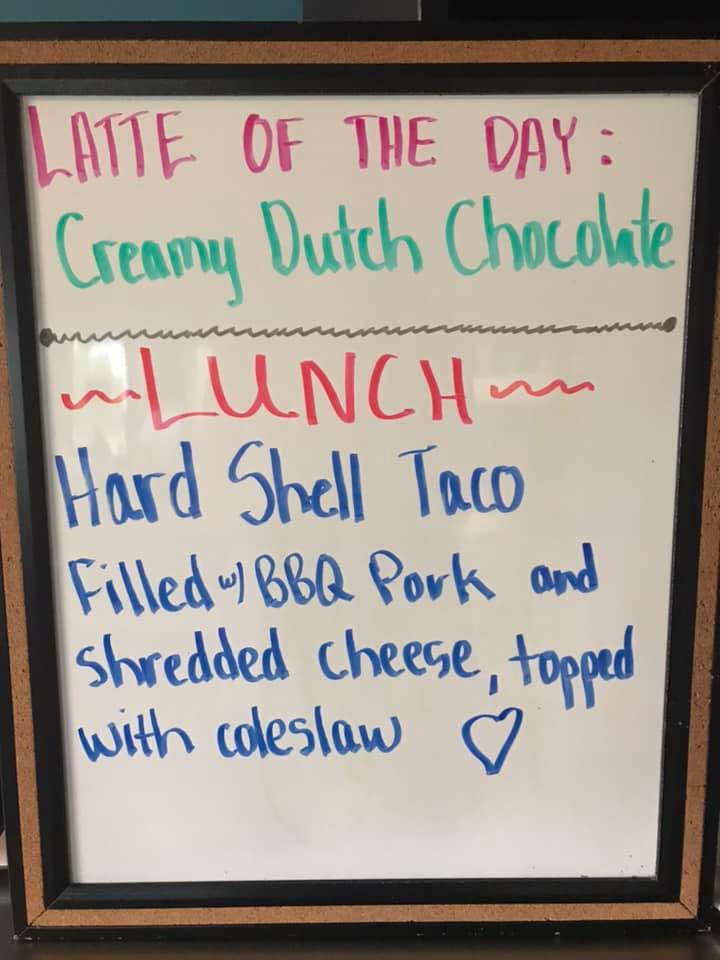 LATTE OF THE DAY:
Creamy Dutch Chocolate
LUNCH
Hard Shell Taco
Filled w/ BBQ Pork and
shredded cheese, topped
with coleslaw